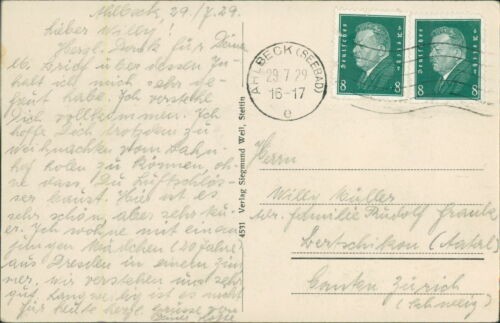 Ahlbeck, 29./7.29.
Lieber Willy!
Herzl. Dank für Deinen
lb. Brief über dessen In-
halt ich mich sehr ge-
freut habe. Ich verstehe
Dich vollkommen. Ich
hoffe Dich trotzdem zu
Weihnachten vom Bahn-
hof holen zu können, oh-
ne dass Du Luftschlös-
ser baust. Hier ist es
sehr schön, aber sehr teu-
er. Ich wohne mit einem
jungen Mädchen (20 Jahre)
aus Dresden in einem Zim-
mer, wir verstehen uns sehr
gut. Langweilig ist es nicht
für heute herzl. Grüsse von
Deiner
4531 Verlag Siegmund Weil, Stettin
AHLBECK (SEEBAD)
29.7.29
16-17
e
Deutsches Reich
8 8
Deutsches Reich
8 8
Herrn
Willy Müller
Familie Rudolf Frank
Bertschikon (Aatal)
Canton Zürich
(Schweiz)